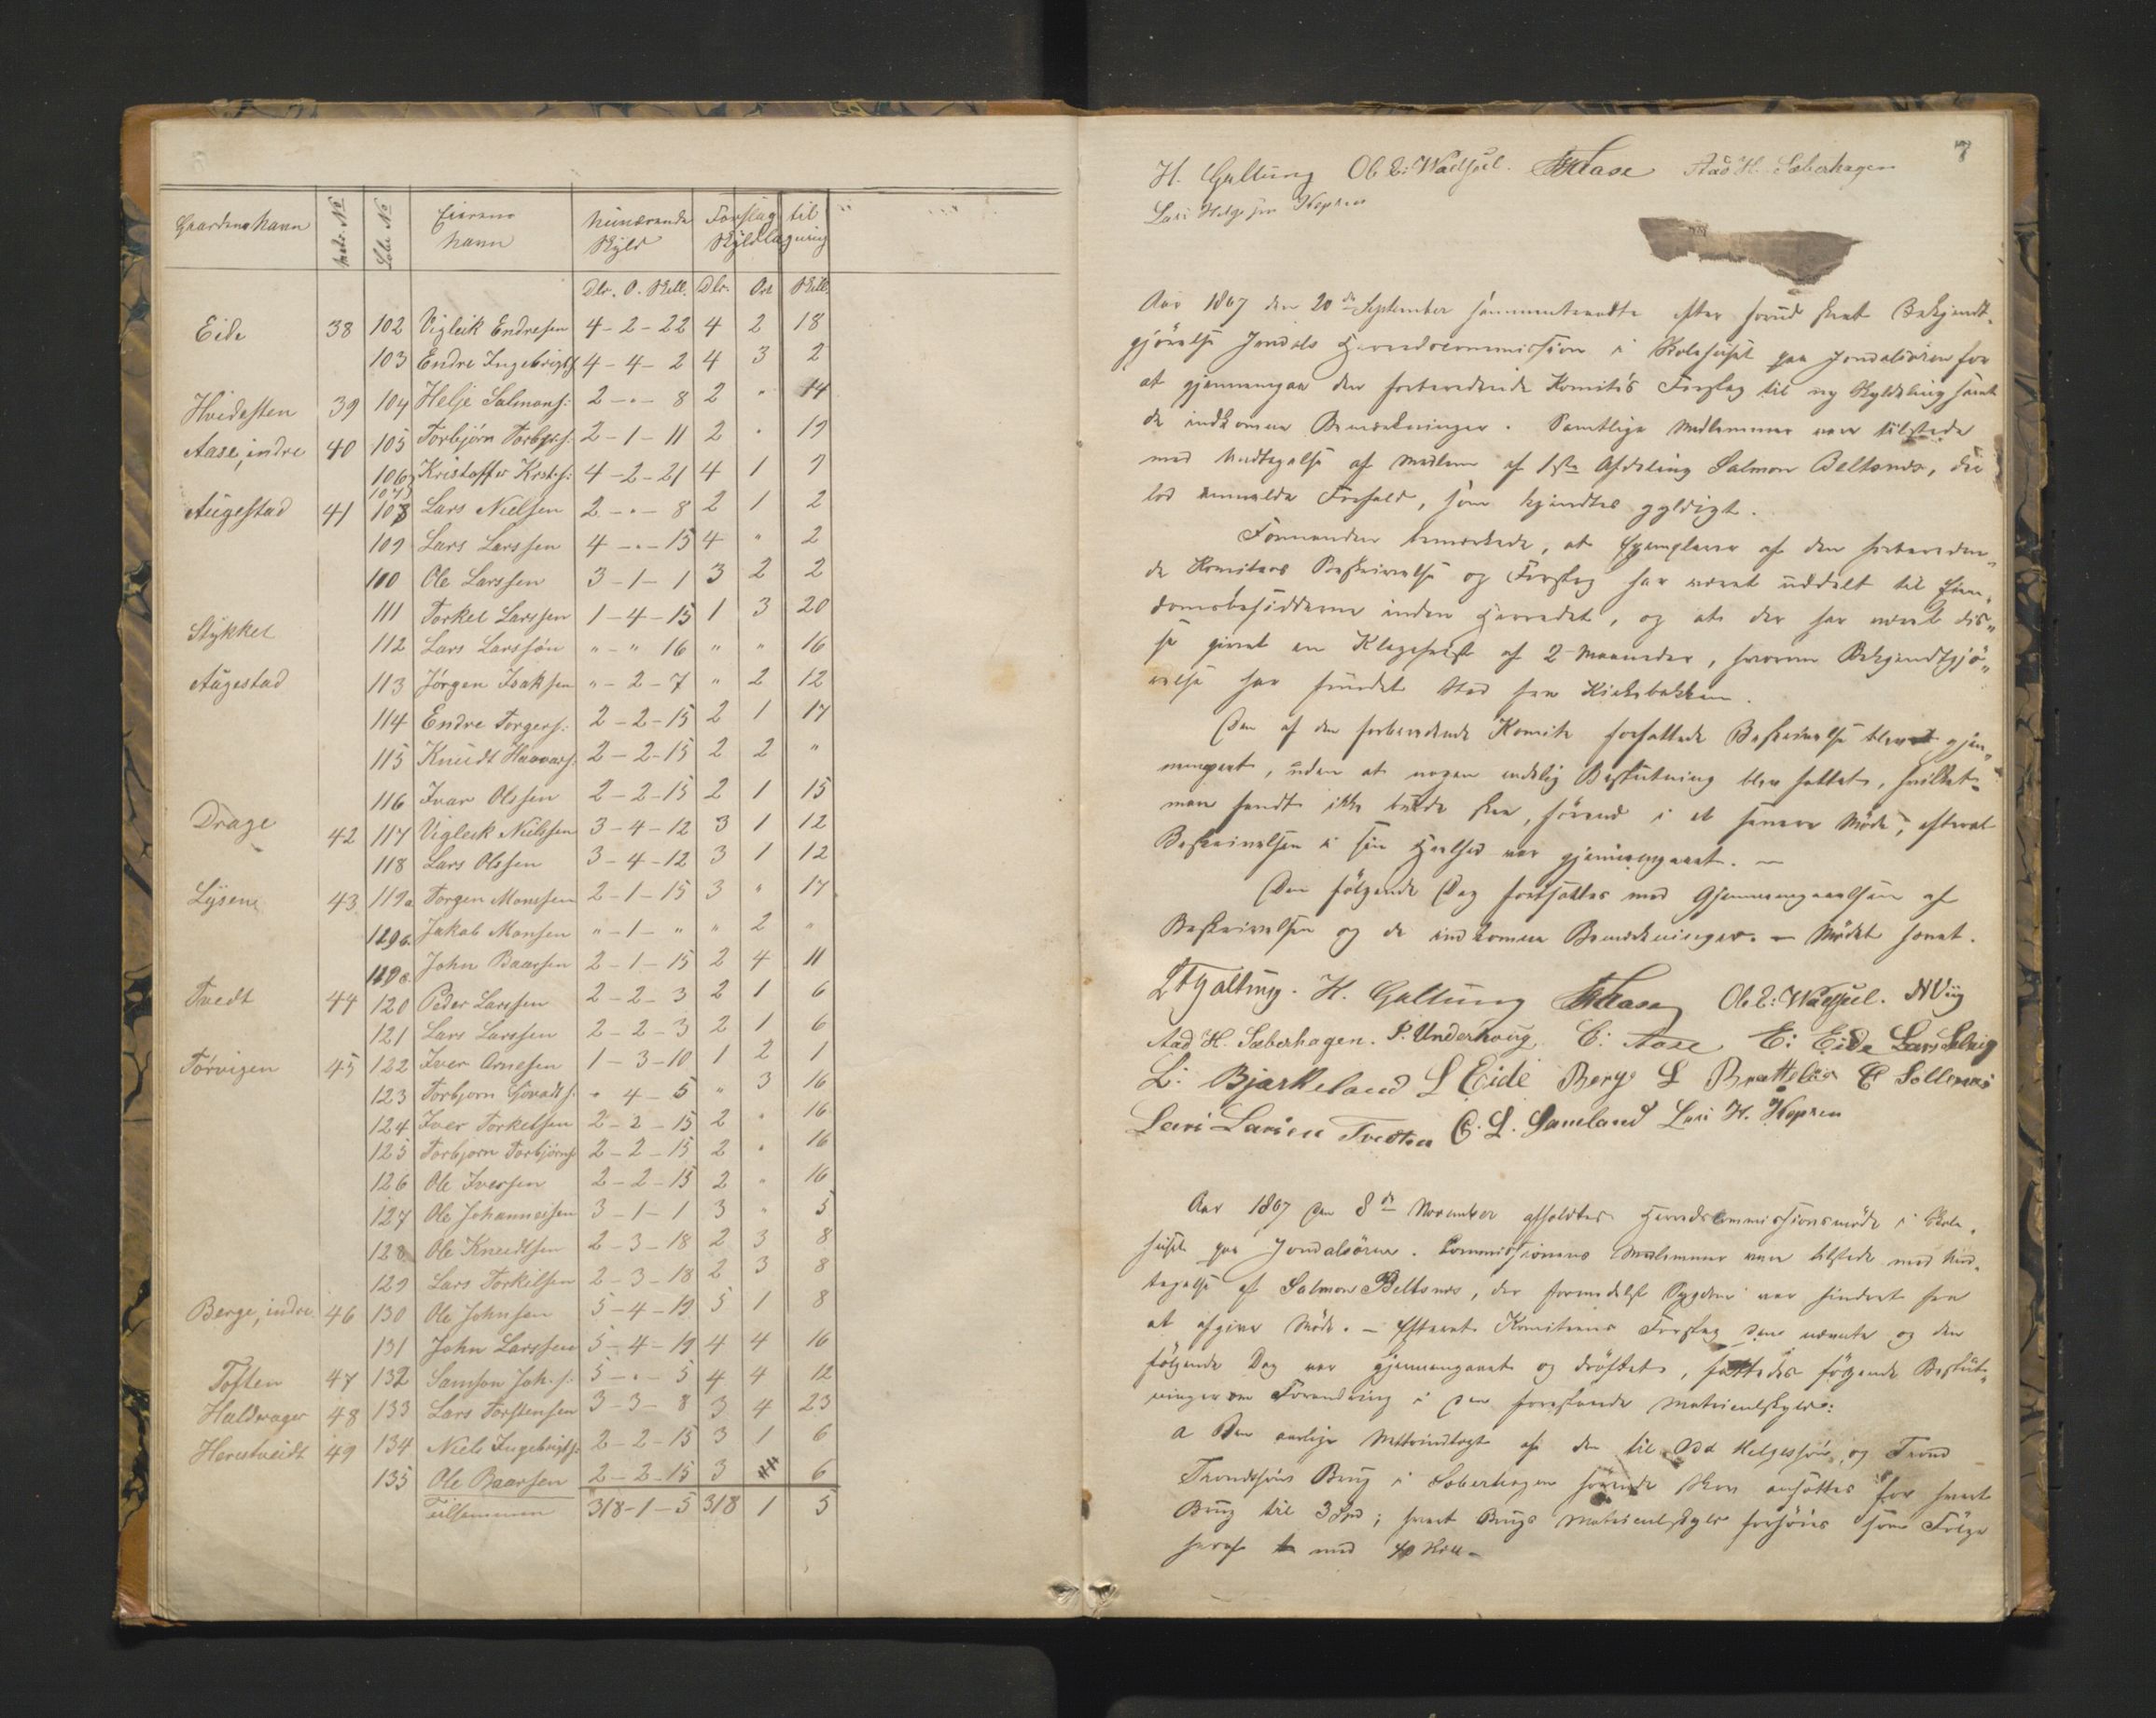 Gaardens Navn Matr. No Løbe No Eierens Navn Nuværende Skyld Forslag til Skyldlægning
Dlr. O. Skill. Dlr. Ort Skill.
Eide 38 102 Vigleik Endresen 4-2-22 4 2 18
103 Endre Ingebrigts. 4-4-2 4 3 2
Hvidesten 39 104 Helje Salmons: 2-"-8 2 " 14
Aase, indre 40 105 Torbjörn Torbjs: 2-1-11 2 " 19
106 Kristoffer Krist.s: 4-2-21 4 1 9
107
Augestad 41 108 Lars Nielsen 2-"-8 2 1 2
109 Lars Larssen 4-"-15 4 " 2
110 Ole Larssen 3-1-1 3 2 2
111 Torkel Larssen 1-4-15 1 3 20
Stykket 112 Lars Larssön "-" 16 " " 16
Augestad 113 Jörgen Isaksen "-2-7 " 2 12
114 Endre Torgers: 2-2-15 2 1 17
115 Knudt Haavars. 2-2-15 2 2 "
116 Ivar Olssen 2-2-15 2 1 15
Drage 42 117 Vigleik Nielssen 3-4-12 3 1 12
118 Lars Olssen 3-4-12 3 1 12
Lysen 43 119a Torgen Monssen 2-1-15 3 " 17
Jakob Monsen "-1-" " 2 "
John Baarsen 2-1-15 2 4 11
Tvedt 44 120 Peder Larssen 2-2-3 2 1 6
121 Lars Larssen 2-2-3 2 1 6
Törvigen 45 122 Iver Arnesen 1-3-10 1 2 1
123 Torbjorn " 4-5 " 3 16
124 Iver Torkelsen 2-2-15 2 " 16
125 Torbjorn Torbjörns. 2-2-15 2 " 16
126 Ole Iversen 2-2-15 2 " 16
127 Ole Johannessen 3-1-1 3 " 5
128 Ole Knudtsen 2-3-18 2 3 8
129 Lars Torkilsen 2-3-18 2 3 8
Berge, indre 46 130 Ole Johnsen 5-4-19 5 1 8
131 John Larssen 5-4-19 4 4 16
Toften 47 132 Samson Joh.s. 5-"-5 4 4 12
Haldrager 48 133 Lars Torstensen 3-3-8 3 4 23
Herestveidt 49 134 Niels Ingebrigts: 2-2-15 3 1 6
135 Ole Baarsen 2-2-15 3 6
Tilsammen 318-1-5 318 1 5
7
H. Galtung Ol. E: Aase Aad H. Sæberhagen
Lars Helgesen
Aar 1867 den 20de September sammentraadte efter forud skeet Bekjendt-
gjörelse Jondals Herredscommission i Skolehuset paa Jondalsören for
at gjennemgaa den forberedende Komités Forslag til ny Skyldlægning samt
de indkomne Bemærkninger. Samtlige Medlemmer vare tilstede
med Undtagelse af Medlem af 1ste Afdeling Salmon Beltsnes, der
lod anmelde Forfald, som kjendtes gyldigt.
Formanden bemærkede, at Exemplarer af den forbereden-
de Komitees Beskrivelse og Forslag har været uddelt til Eien-
domsbesidderne inden Herredet, og at der har været dis-
se givet en Klagefrist af 2 Maaneder, hvorom Bekjendtgjö-
relse har fundet Sted fra Kirkebakken.
Den af den forberedende Komite forfattede Beskrivelse blev gjen-
nemgaaet, uden at nogen endelig Beslutning blev fattet, hvilket
man fandt ikke burde ske, förend i et senere Möde, efterat
Beskrivelsen i sin Heelhed var gjennemgaaet. —
Den fölgende Dag fortsattes med Gjennemgaaelsen af
Beskrivelsen og de indkomne Bemærkninger. — Mödet hævet.
Galtung. H. Galtung Aase Ol. E: NViig
Aad H. Sæberhagen. P. Underhoug. E: Aase E: Eide Lars Selvig
L: Bjørkeland L Eide Berge L
Lars Larsen Tvedten L. Samland Lars H.
Aar 1867 den 8de November afholdtes Herredscommissionsmöde i Skole-
huset paa Jondalsören. Commissionens Medlemmer vare tilstede med Und-
tagelse af Salmon Beltsnes, der formedelst Sygdom var hindret fra
at afgive Möde. — Efterat Komiteens Forslag den nævnte og den
fölgende Dag var gjennemgaaet og dröftet, fattedes fölgende Beslut-
ninger om Forandring i den foreslaaede Matriculskyld:
a Den aarlige Nettoindtægt af den til Aad Helgessön og Trond
Trondssöns Brug i Sæberhagen hörende Skov ansættes for hvert
Brug til 3 Spd; hvert Brugs Matriculskyld forhöies som Fölge
heraf med Skill.